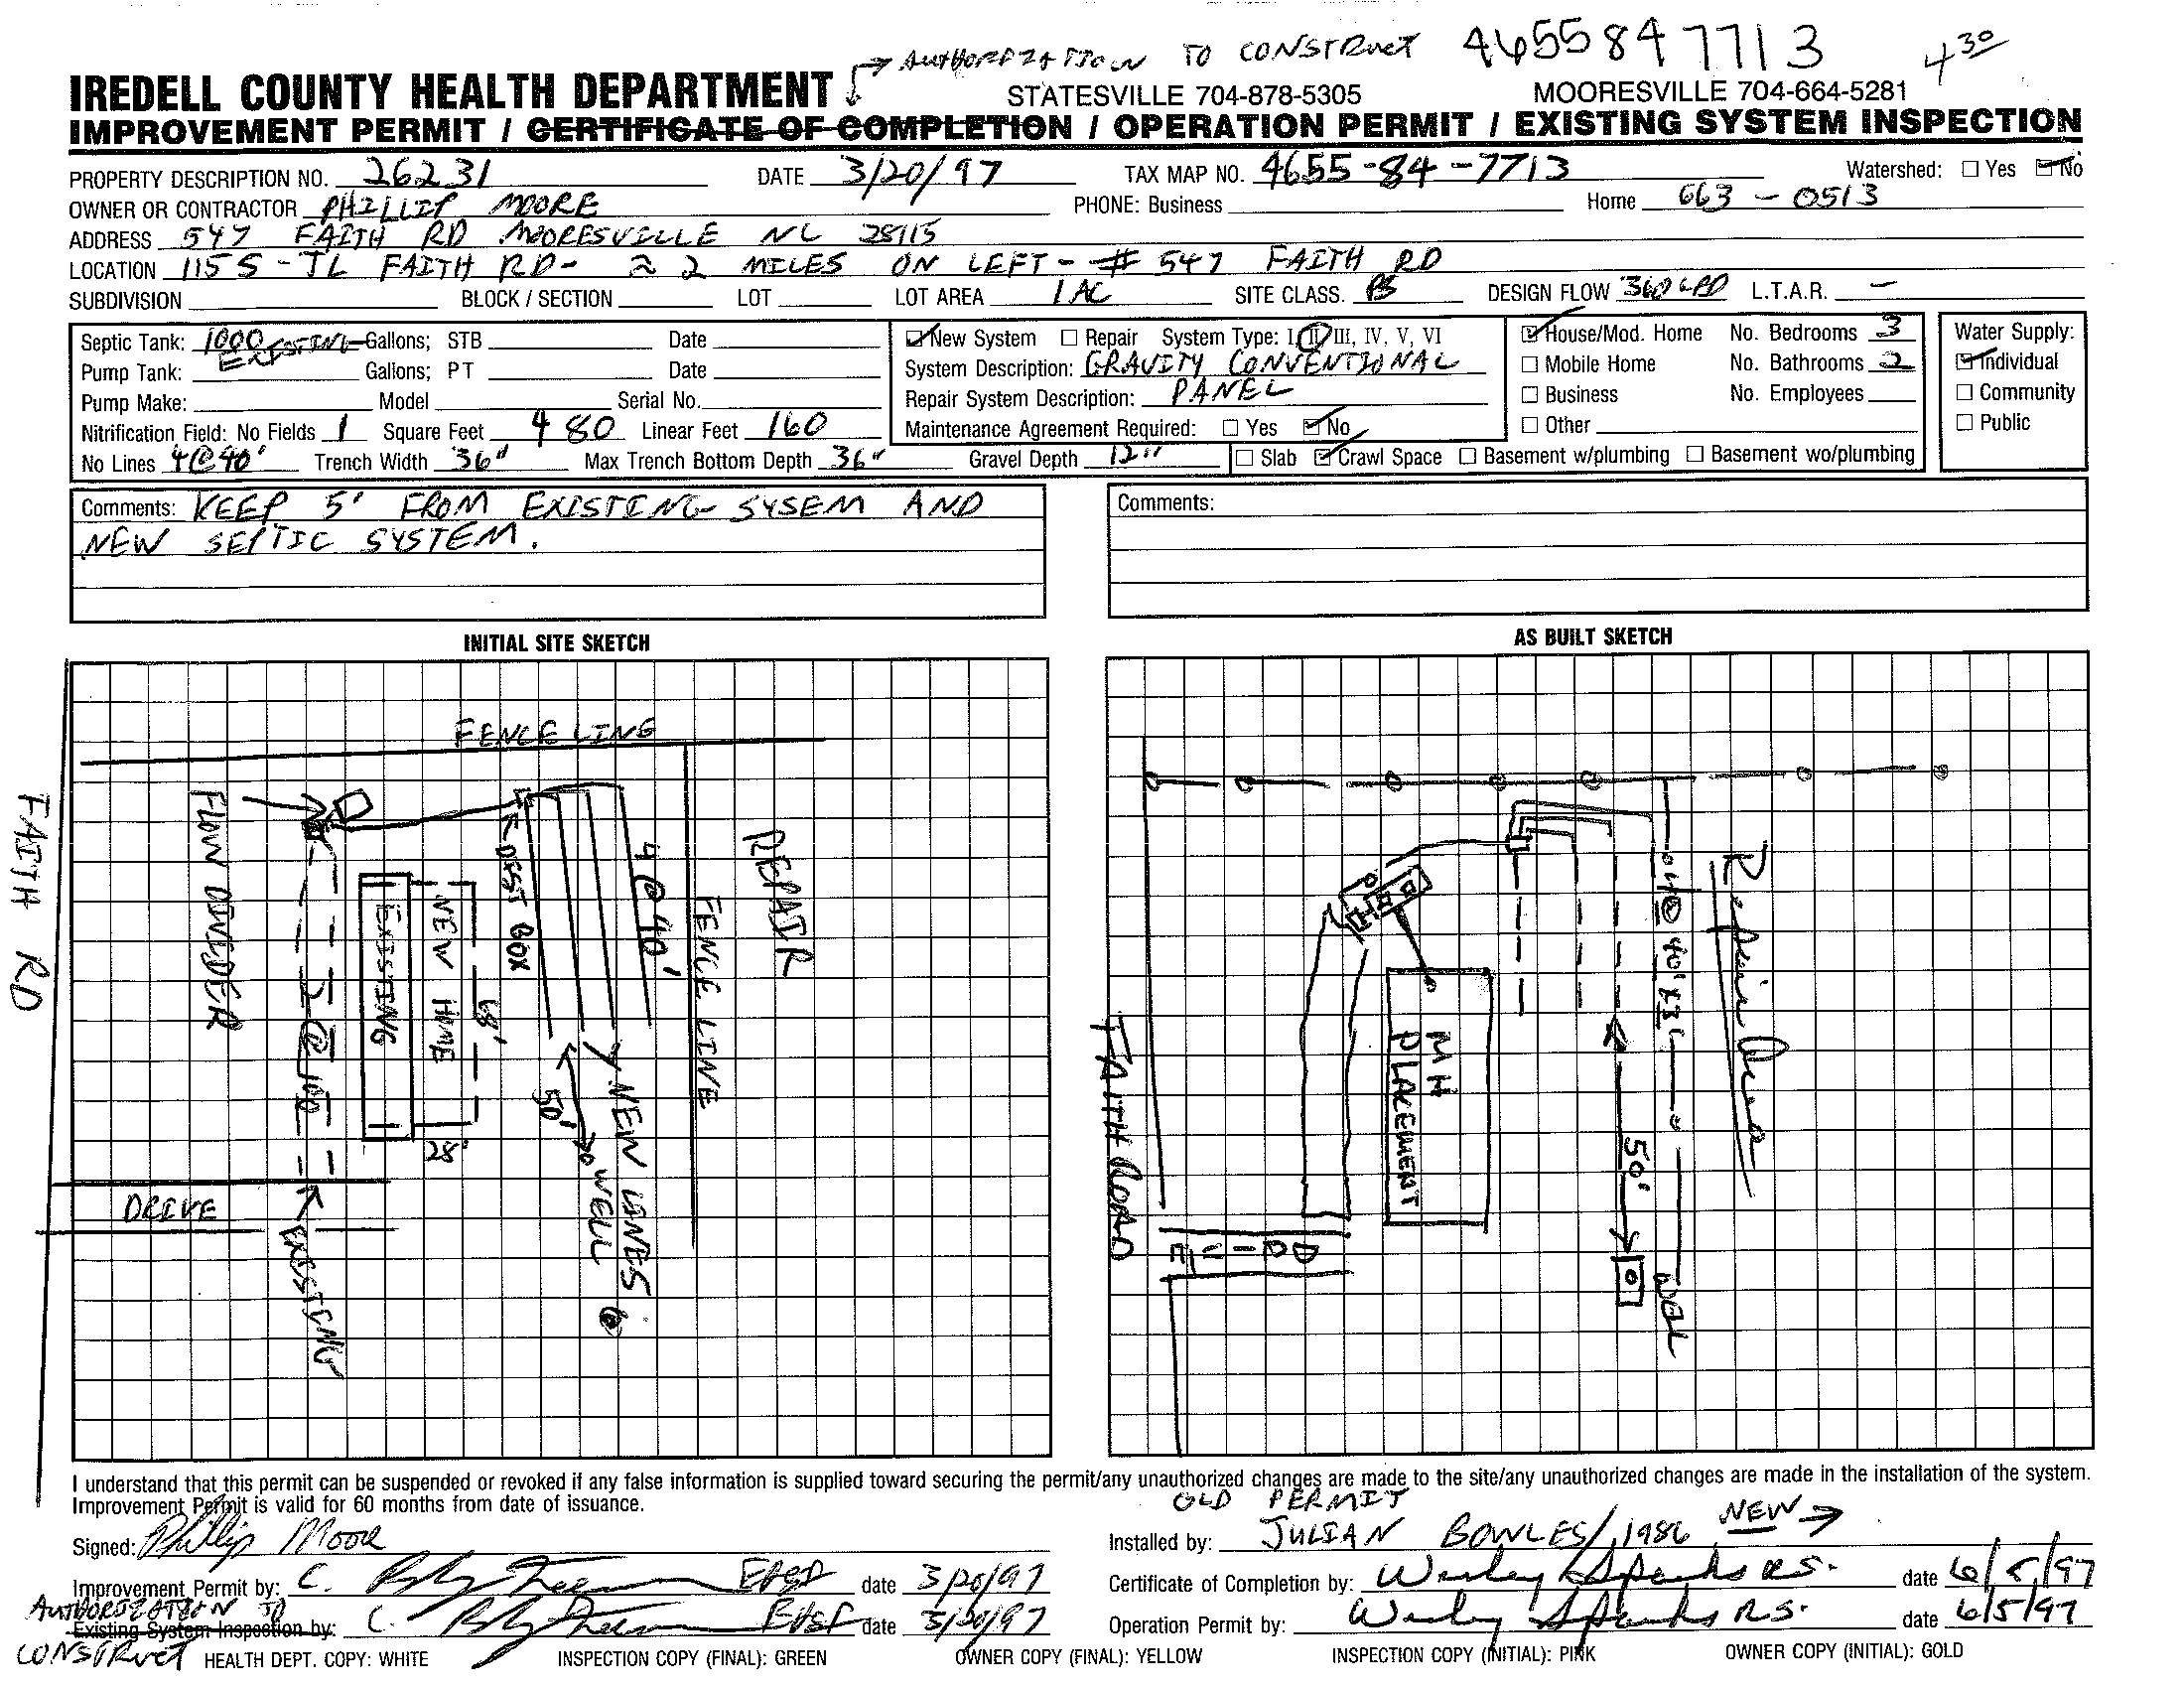 AUTHORIZATION TO CONSTRUCT 4655847713 4 30
IREDELL COUNTY HEALTH DEPARTMENT STATESVILLE 704-878-5305 MOORESVILLE 704-664-5281
IMPROVEMENT PERMIT / CERTIFICATE OF COMPLETION / OPERATION PERMIT / EXISTING SYSTEM INSPECTION
PROPERTY DESCRIPTION NO. 26231 DATE 3/20/97 TAX MAP NO. 4655-84-7713 Watershed: ☐ Yes ☑ No
OWNER OR CONTRACTOR PHILLIP MOORE PHONE: Business Home 663-0513
ADDRESS 547 FAITH RD MOORESVILLE NC 28115
LOCATION 115 S - TL FAITH RD - ≈ 2 MILES ON LEFT - # 547 FAITH RD
SUBDIVISION BLOCK / SECTION LOT LOT AREA 1 AC SITE CLASS. PS DESIGN FLOW 360 GPD L.T.A.R. -
Septic Tank: 1000 EXISTING Gallons; STB Date
Pump Tank: Gallons; PT Date
Pump Make: Model Serial No.
Nitrification Field: No Fields 1 Square Feet 480 Linear Feet 160
No Lines 4@40' Trench Width 36" Max Trench Bottom Depth 36" Gravel Depth 12"
☑ New System ☐ Repair System Type: I, II, III, IV, V, VI
System Description: GRAVITY CONVENTIONAL
Repair System Description: PANEL
Maintenance Agreement Required: ☐ Yes ☑ No
☑ House/Mod. Home No. Bedrooms 3
☐ Mobile Home No. Bathrooms 2
☐ Business No. Employees
☐ Other
☐ Slab ☑ Crawl Space ☐ Basement w/plumbing ☐ Basement wo/plumbing
Water Supply:
☑ Individual
☐ Community
☐ Public
Comments: KEEP 5' FROM EXISTING SYSEM AND
NEW SEPTIC SYSTEM.
Comments:
INITIAL SITE SKETCH
FENCE LINE
FAITH RD
FLOW DIVIDER
2 @ 100
EXISTING
NEW HOME
68'
28'
DIST BOX
4 @ 40'
FENCE LINE
REPAIR
50'
NEW LINES
WELL
DRIVE
EXISTING
AS BUILT SKETCH
FAITH ROAD
MH
PLACEMENT
4 @ 40' x 3
Repair Area
50'
WELL
I understand that this permit can be suspended or revoked if any false information is supplied toward securing the permit/any unauthorized changes are made to the site/any unauthorized changes are made in the installation of the system.
Improvement Permit is valid for 60 months from date of issuance.
Signed: Phillip Moore
Improvement Permit by: C. date 3/20/97
AUTHORIZATION TO
Existing System Inspection by: C. date 3/20/97
CONSTRUCT
OLD PERMIT
Installed by: JULIAN BOWLES/1986 NEW →
Certificate of Completion by: Wesley R.S. date 6/5/97
Operation Permit by: Wesley R.S. date 6/5/97
HEALTH DEPT. COPY: WHITE INSPECTION COPY (FINAL): GREEN OWNER COPY (FINAL): YELLOW INSPECTION COPY (INITIAL): PINK OWNER COPY (INITIAL): GOLD